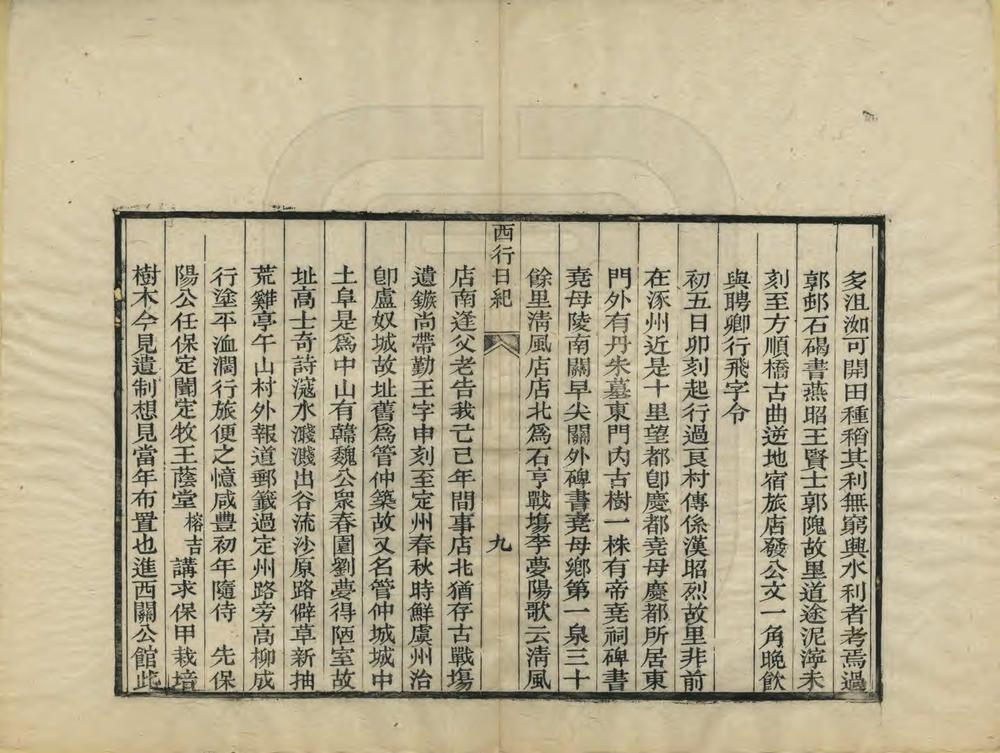 多沮洳可開田種稻其利無窮興水利者考焉過
郭邨石碣書燕昭王賢士郭隗故里道途泥濘未
刻至方順橋古曲逆地宿旅店發公文一角晚飲
與聘卿行飛字令
初五日卯刻起行過良村傳係漢昭烈故里非前
在涿州近是十里望都卽慶都堯母慶都所居東
門外有丹朱墓東門內古樹一株有帝堯祠碑書
堯母陵南關早尖關外碑書堯母鄉第一泉三十
餘里淸風店店北爲石亨戰塲李夢陽歌云淸風
西行日紀
九
店南逢父老告我己巳年間事店北猶存古戰塲
遺鏃尚帶勤王字申刻至定州春秋時鮮虞州治
卽盧奴城故址舊爲管仲築故又名管仲城城中
土阜是爲中山有韓魏公眾春園劉夢得陋室故
址高士奇詩滱水濺濺出谷流沙原路僻草新抽
荒雞亭午山村外報道郵籤過定州路旁高柳成
行塗平洫濶行旅便之憶咸豐初年隨侍 先保
陽公任保定聞定牧王蔭堂榕吉講求保甲栽培
樹木今見遺制想見當年布置也進西關公館此